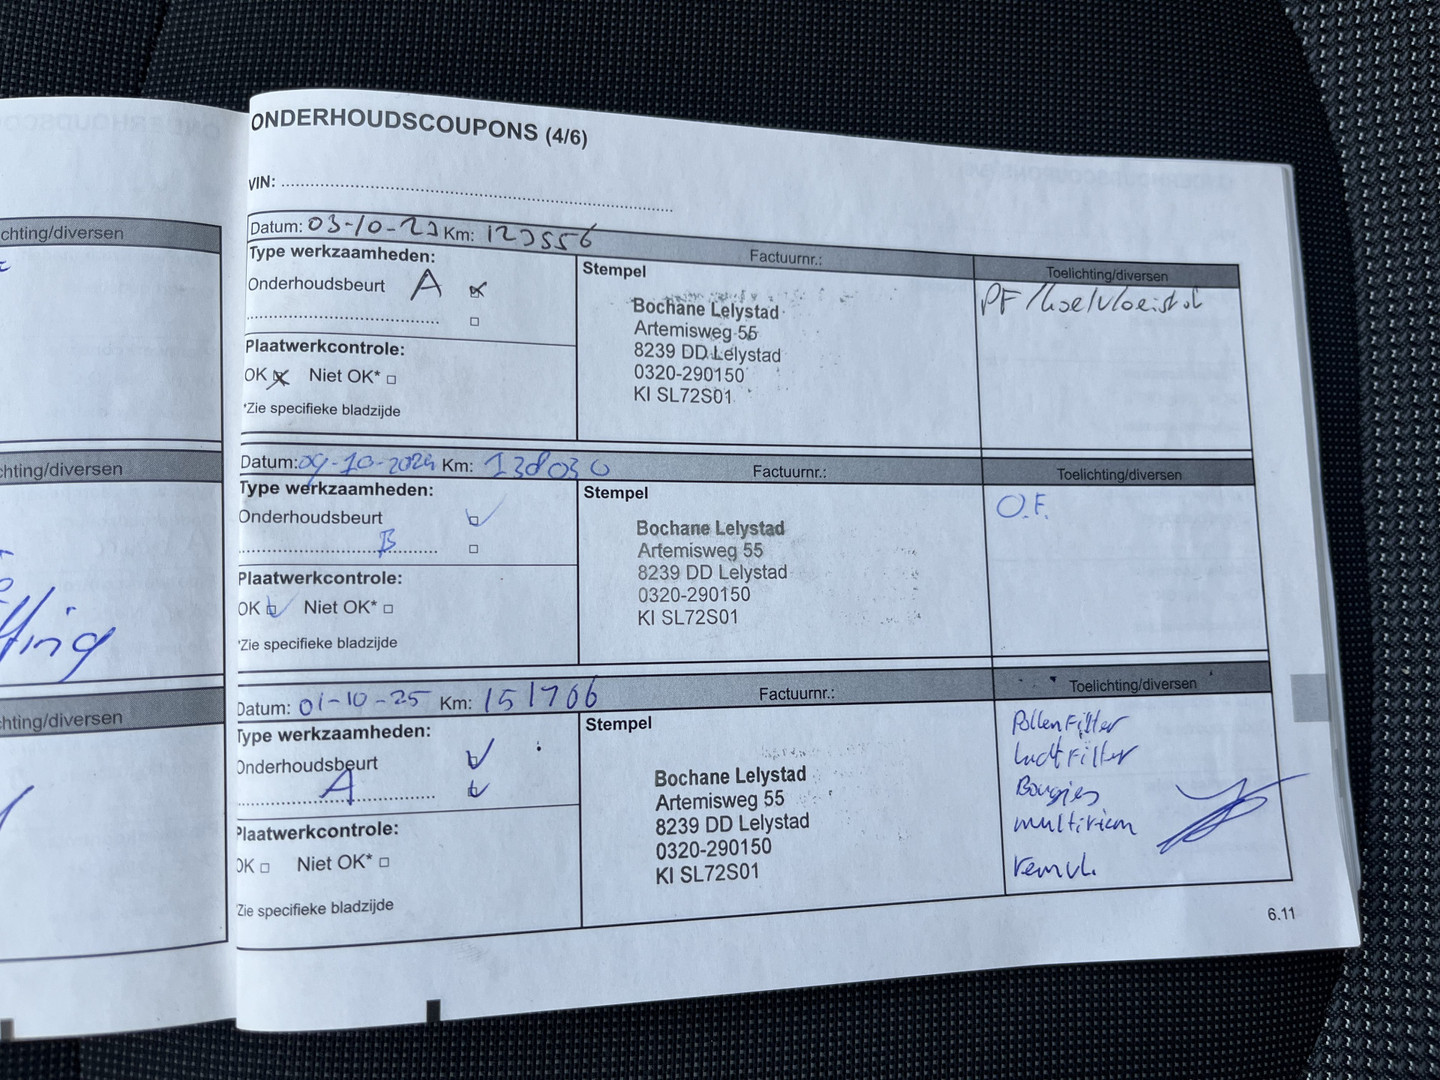 ONDERHOUDSCOUPONS (4/6)
VIN:
Datum: 03-10-23 Km: 123556 Factuurnr.: Toelichting/diversen
Type werkzaamheden:
Onderhoudsbeurt A
Stempel
PF / koelvloeistof
Plaatwerkcontrole:
OK Niet OK*
*Zie specifieke bladzijde
Bochane Lelystad
Artemisweg 55
8239 DD Lelystad
0320-290150
KI SL72S01
Datum: 09-10-2024 Km: 138030 Factuurnr.: Toelichting/diversen
Type werkzaamheden:
Onderhoudsbeurt
B
Plaatwerkcontrole:
OK Niet OK*
*Zie specifieke bladzijde
Stempel
Bochane Lelystad
Artemisweg 55
8239 DD Lelystad
0320-290150
KI SL72S01
O.F.
Datum: 01-10-25 Km: 151706 Factuurnr.: Toelichting/diversen
Type werkzaamheden:
Onderhoudsbeurt
A
Plaatwerkcontrole:
OK Niet OK*
Zie specifieke bladzijde
Stempel
Bochane Lelystad
Artemisweg 55
8239 DD Lelystad
0320-290150
KI SL72S01
Pollenfilter
luchtfilter
Bougies
multiriem
remvl.
6.11
chting/diversen
chting/diversen
chting/diversen